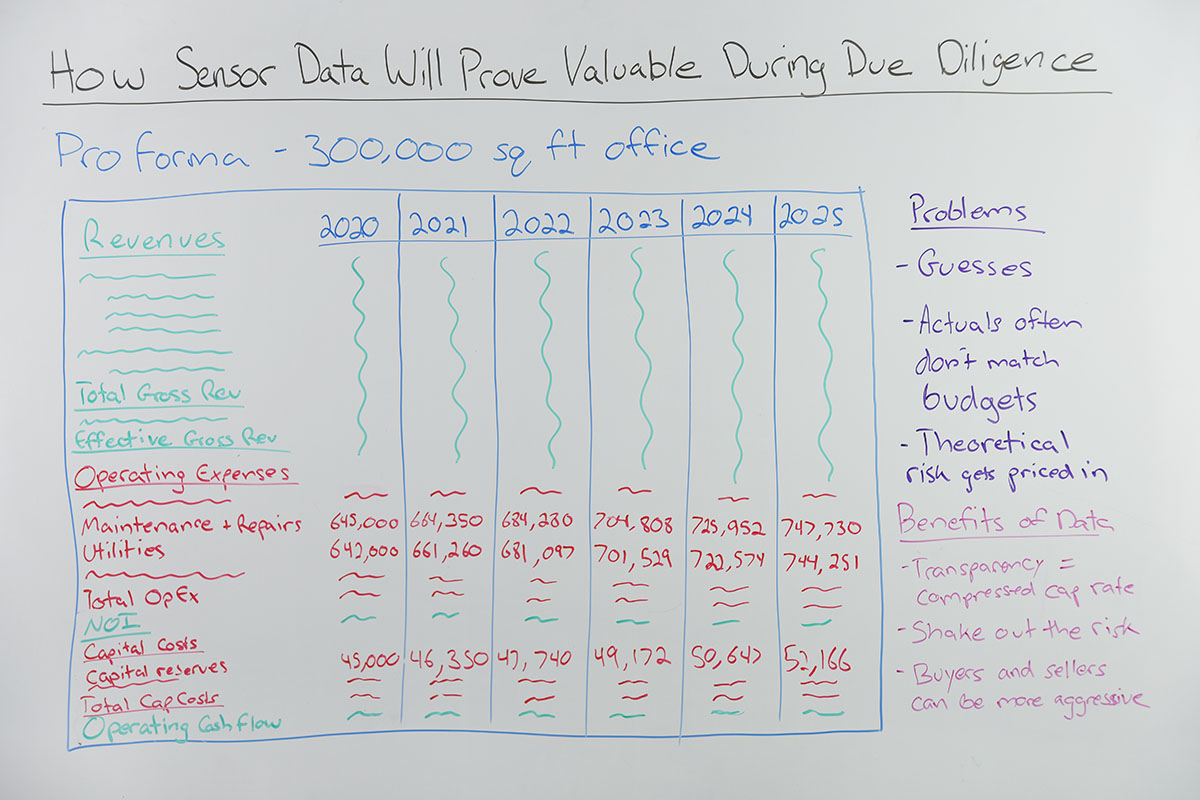 How Sensor Data Will Prove Valuable During Due Diligence
Pro Forma - 300,000 sq ft office
Revenues 2020 2021 2022 2023 2024 2025
Total Gross Rev
Effective Gross Rev
Operating Expenses
Maintenance + Repairs 645,000 664,350 684,280 704,808 725,952 747,730
Utilities 642,000 661,260 681,097 701,529 722,574 744,251
Total OpEx
NOI
Capital Costs
Capital reserves 45,000 46,350 47,740 49,172 50,647 52,166
Total Cap Costs
Operating Cash flow
Problems
- Guesses
- Actuals often
don't match
budgets
- Theoretical
risk gets priced in
Benefits of Data
- Transparency =
compressed cap rate
- Shake out the risk
- Buyers and sellers
can be more aggressive